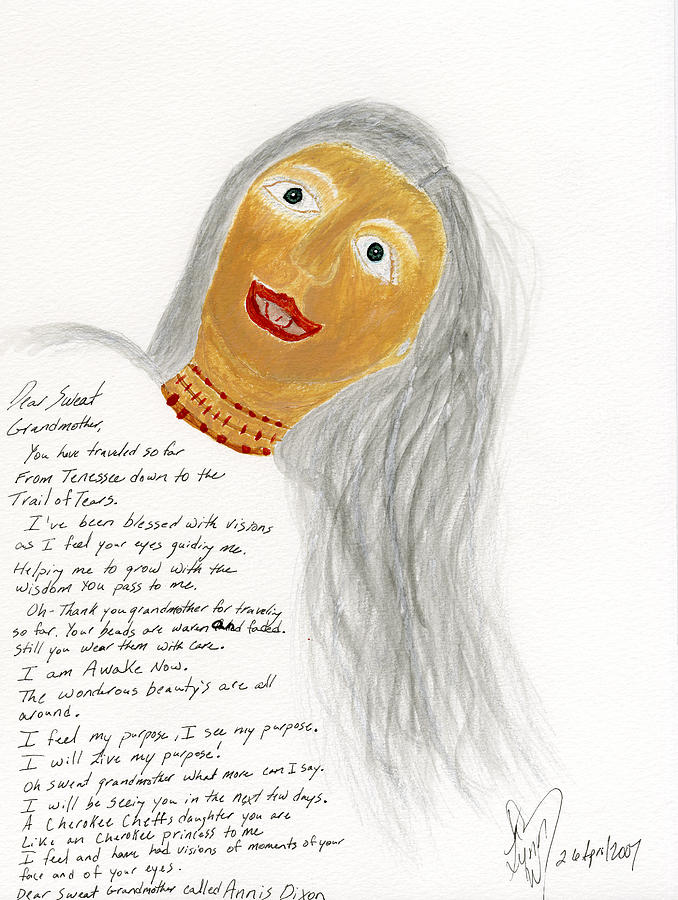 Dear Sweat
Grandmother,
You have traveled so far
From Tenessee down to the
Trail of Tears.
I've been blessed with visions
as I feel your eyes guiding me.
Helping me to grow with the
wisdom You pass to me.
Oh-Thank you grandmother for traveling
so far. Your beads are waren and faded.
Still you wear them with care.
I am Awake Now.
The wonderous beauty's are all
around.
I feel my purpose, I see my purpose.
I will Live my purpose!
Oh sweat grandmother what more can I say.
I will be seeing you in the next few days.
A Cherokee Cheffs daughter you are
Like an Cherokee princess to me
I feel and have had visions of moments of your
face and of your eyes.
Dear Sweat Grandmother called Annis Dixon
26 April/2007